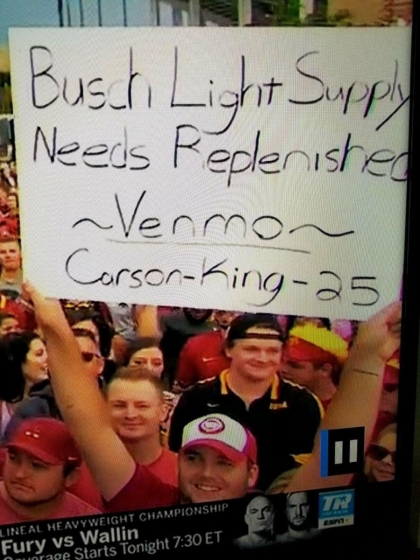 Busch Light Supply
Needs Replenished
~Venmo~
Carson-King-25
LINEAL HEAVYWEIGHT CHAMPIONSHIP
Fury vs Wallin
Coverage Starts Tonight 7:30 ET
TR
ESPN+